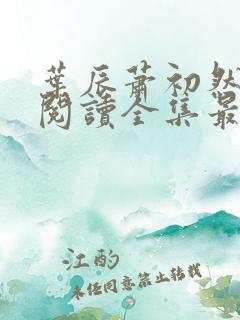 葉辰蕭初然
閱讀全集最
江酌
未任同意禁止转载